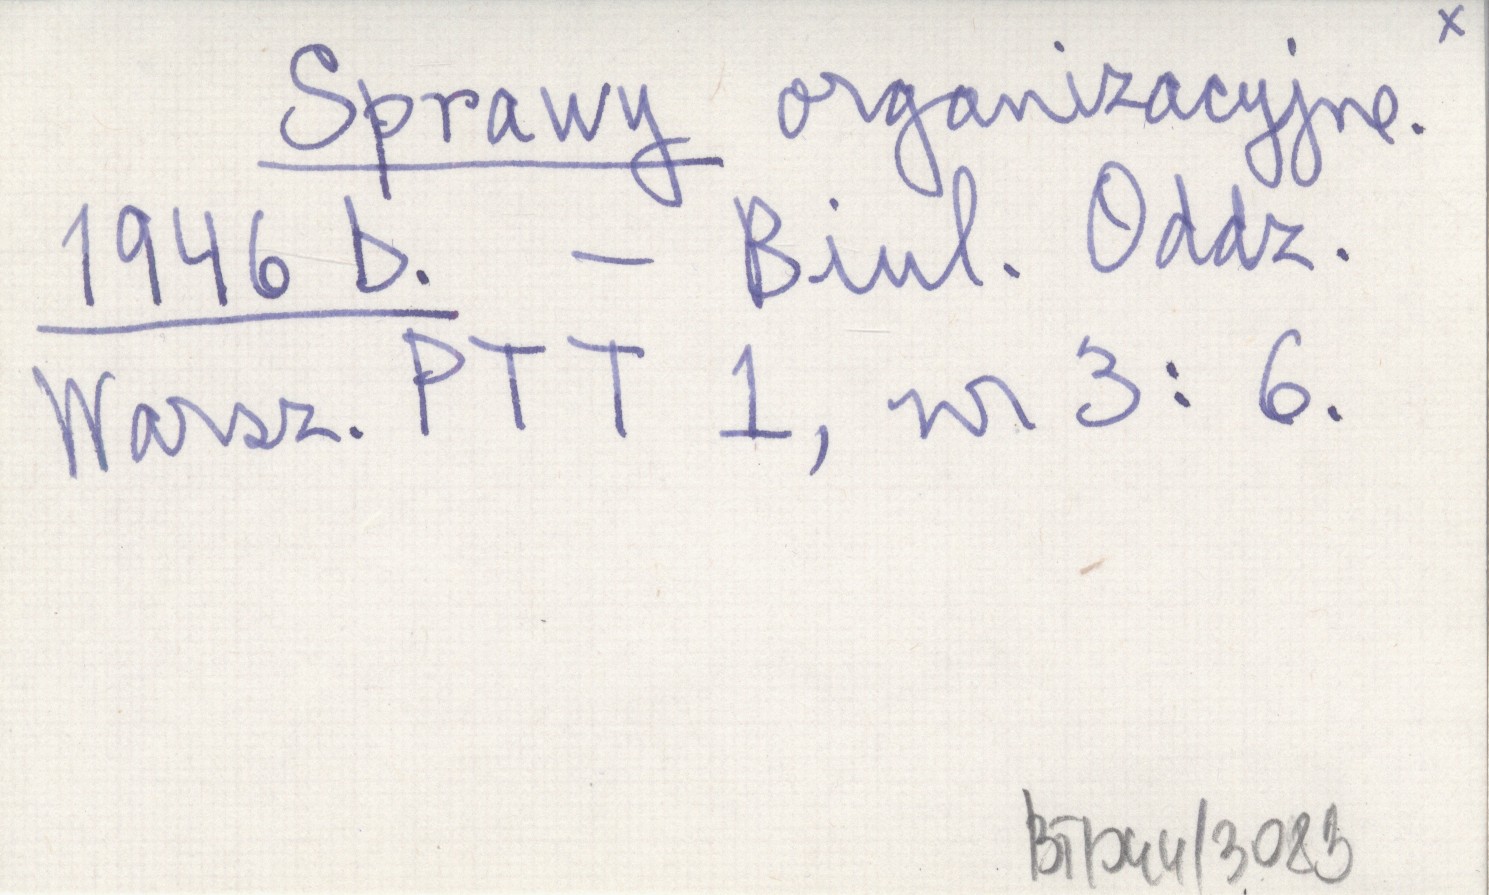 x
Sprawy organizacyjne.
1946 b. – Biul. Oddz.
Warsz. PTT 1, nr 3: 6.